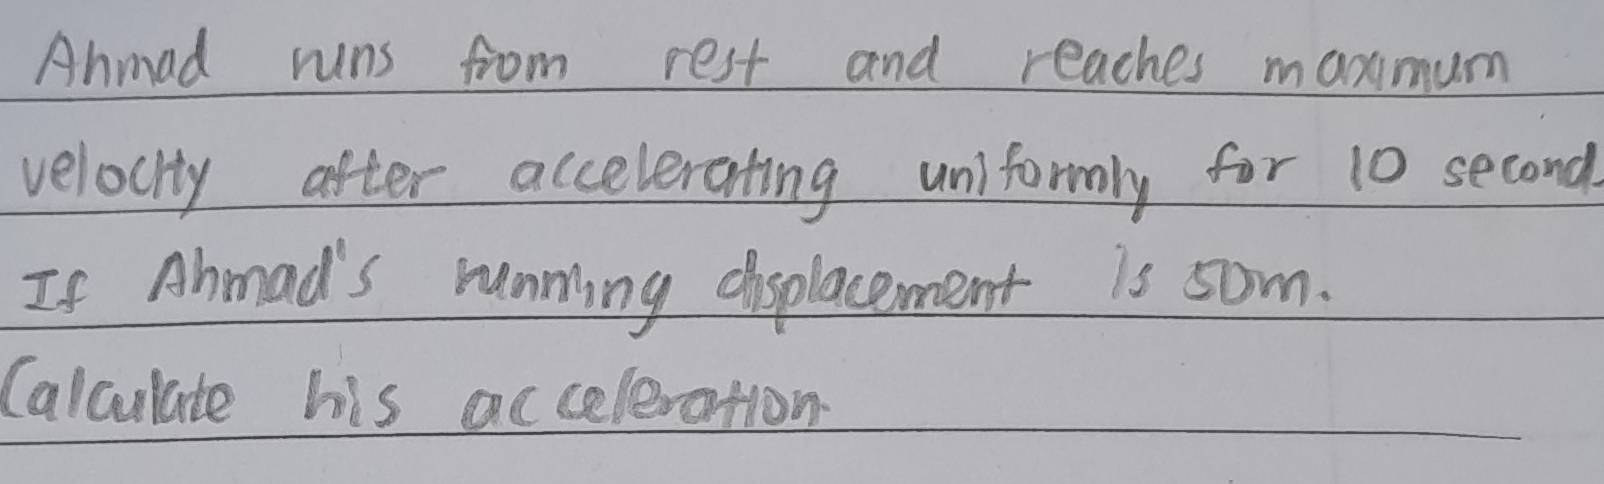 Ahmad runs from rest and reaches maximum
velocity after accelerating uniformly for 10 second.
If Ahmad's running displacement is 50m.
Calculate his acceleration.